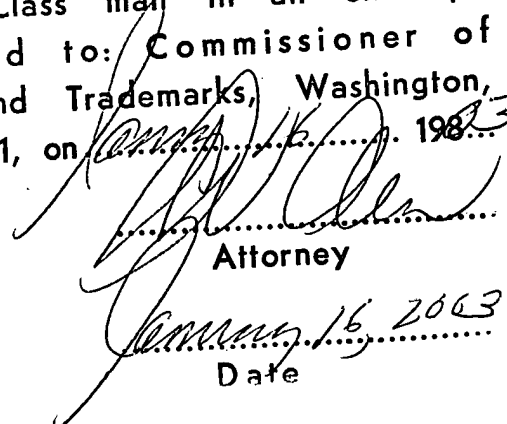 Class mail in an
d to: Commissioner of
nd Trademarks, Washington,
1, on January 16 198 3
Attorney
January 16, 2003
Date